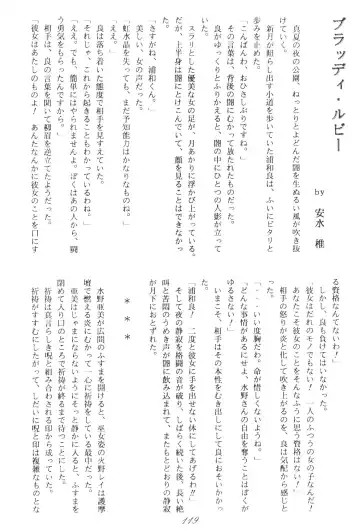 ブラッディ・ルビー
by 安水 椎
真夏の夜の公園。ねっとりとよどんだ闇を生ぬるい風が吹き抜
けていく。
新月が照らし出す小道を歩いていた浦和良は、ふいにピタリと
歩みを止めた。
「こんばんわ、おひさしぶりですね。」
その言葉は、背後の闇にむかって放たれたものだった。
良がゆっくりとふりかえると、闇の中にひとつの人影が立って
いた。
スラリとした優美な女の足が、月あかりに浮かび上がっている。
だが、上半身は闇にとけこんでいて、顔を見ることはできなか
った。
「さすがね、浦和くん。」
美しい、女の声だった。
「虹水晶を失っても、まだ予知能力はかなりなものね。」
良は落ちついた態度で相手を見すえていた。
「それじゃ、これから起きることもわかっているわね。」
「ええ。でも、簡単にはやられませんよ。ぼくはあの人から、闘
う勇気をもらったんですから。」
相手は、良の言葉を聞いて柳眉を逆立てたようだった。
「彼女はあたしのものよ！　あんたなんかに彼女のことを口にす
る資格なんてないわ！」
しかし、良も負けてはいなかった。
「彼女はだれのモノでもない！　一人のふつうの女の子なんだ！
あなたこそ彼女をそんなふうに思う資格はない！」
相手の怒りが炎と化して吹き上がるのを、良は気配から感じと
った。
「・・・いい度胸だわ。命が惜しくないようね。」
「どんな事情があるにせよ、水野さんの自由を奪うことはぼくが
ゆるさない！」
いまこそ、相手はその本性をむき出しにして良におそいかかっ
た。
「浦和良！　二度と彼女に手を出せない体にしてあげるわ!!」
そして夜の静寂を格闘の音が破り、しばらく続いた後、長い絶
叫と苦悶のうめき声が闇に飲み込まれて、またもとどおりの静寂
が月下におとずれた。
＊＊＊
水野亜美が広間のふすまを開けると、巫女姿の火野レイは護摩
壇で燃える炎にむかって一心に祈祷をしている最中だった。
亜美はじゃまにならないようにそっと静かに入ると、ふすまを
閉めて入り口のところで祈祷が終るまで待つことにした。
祈祷は真言らしき呪と組み合わされる印から成っていた。
祈祷がすすむにしたがって、しだいに呪と印は複雑なものとな
119